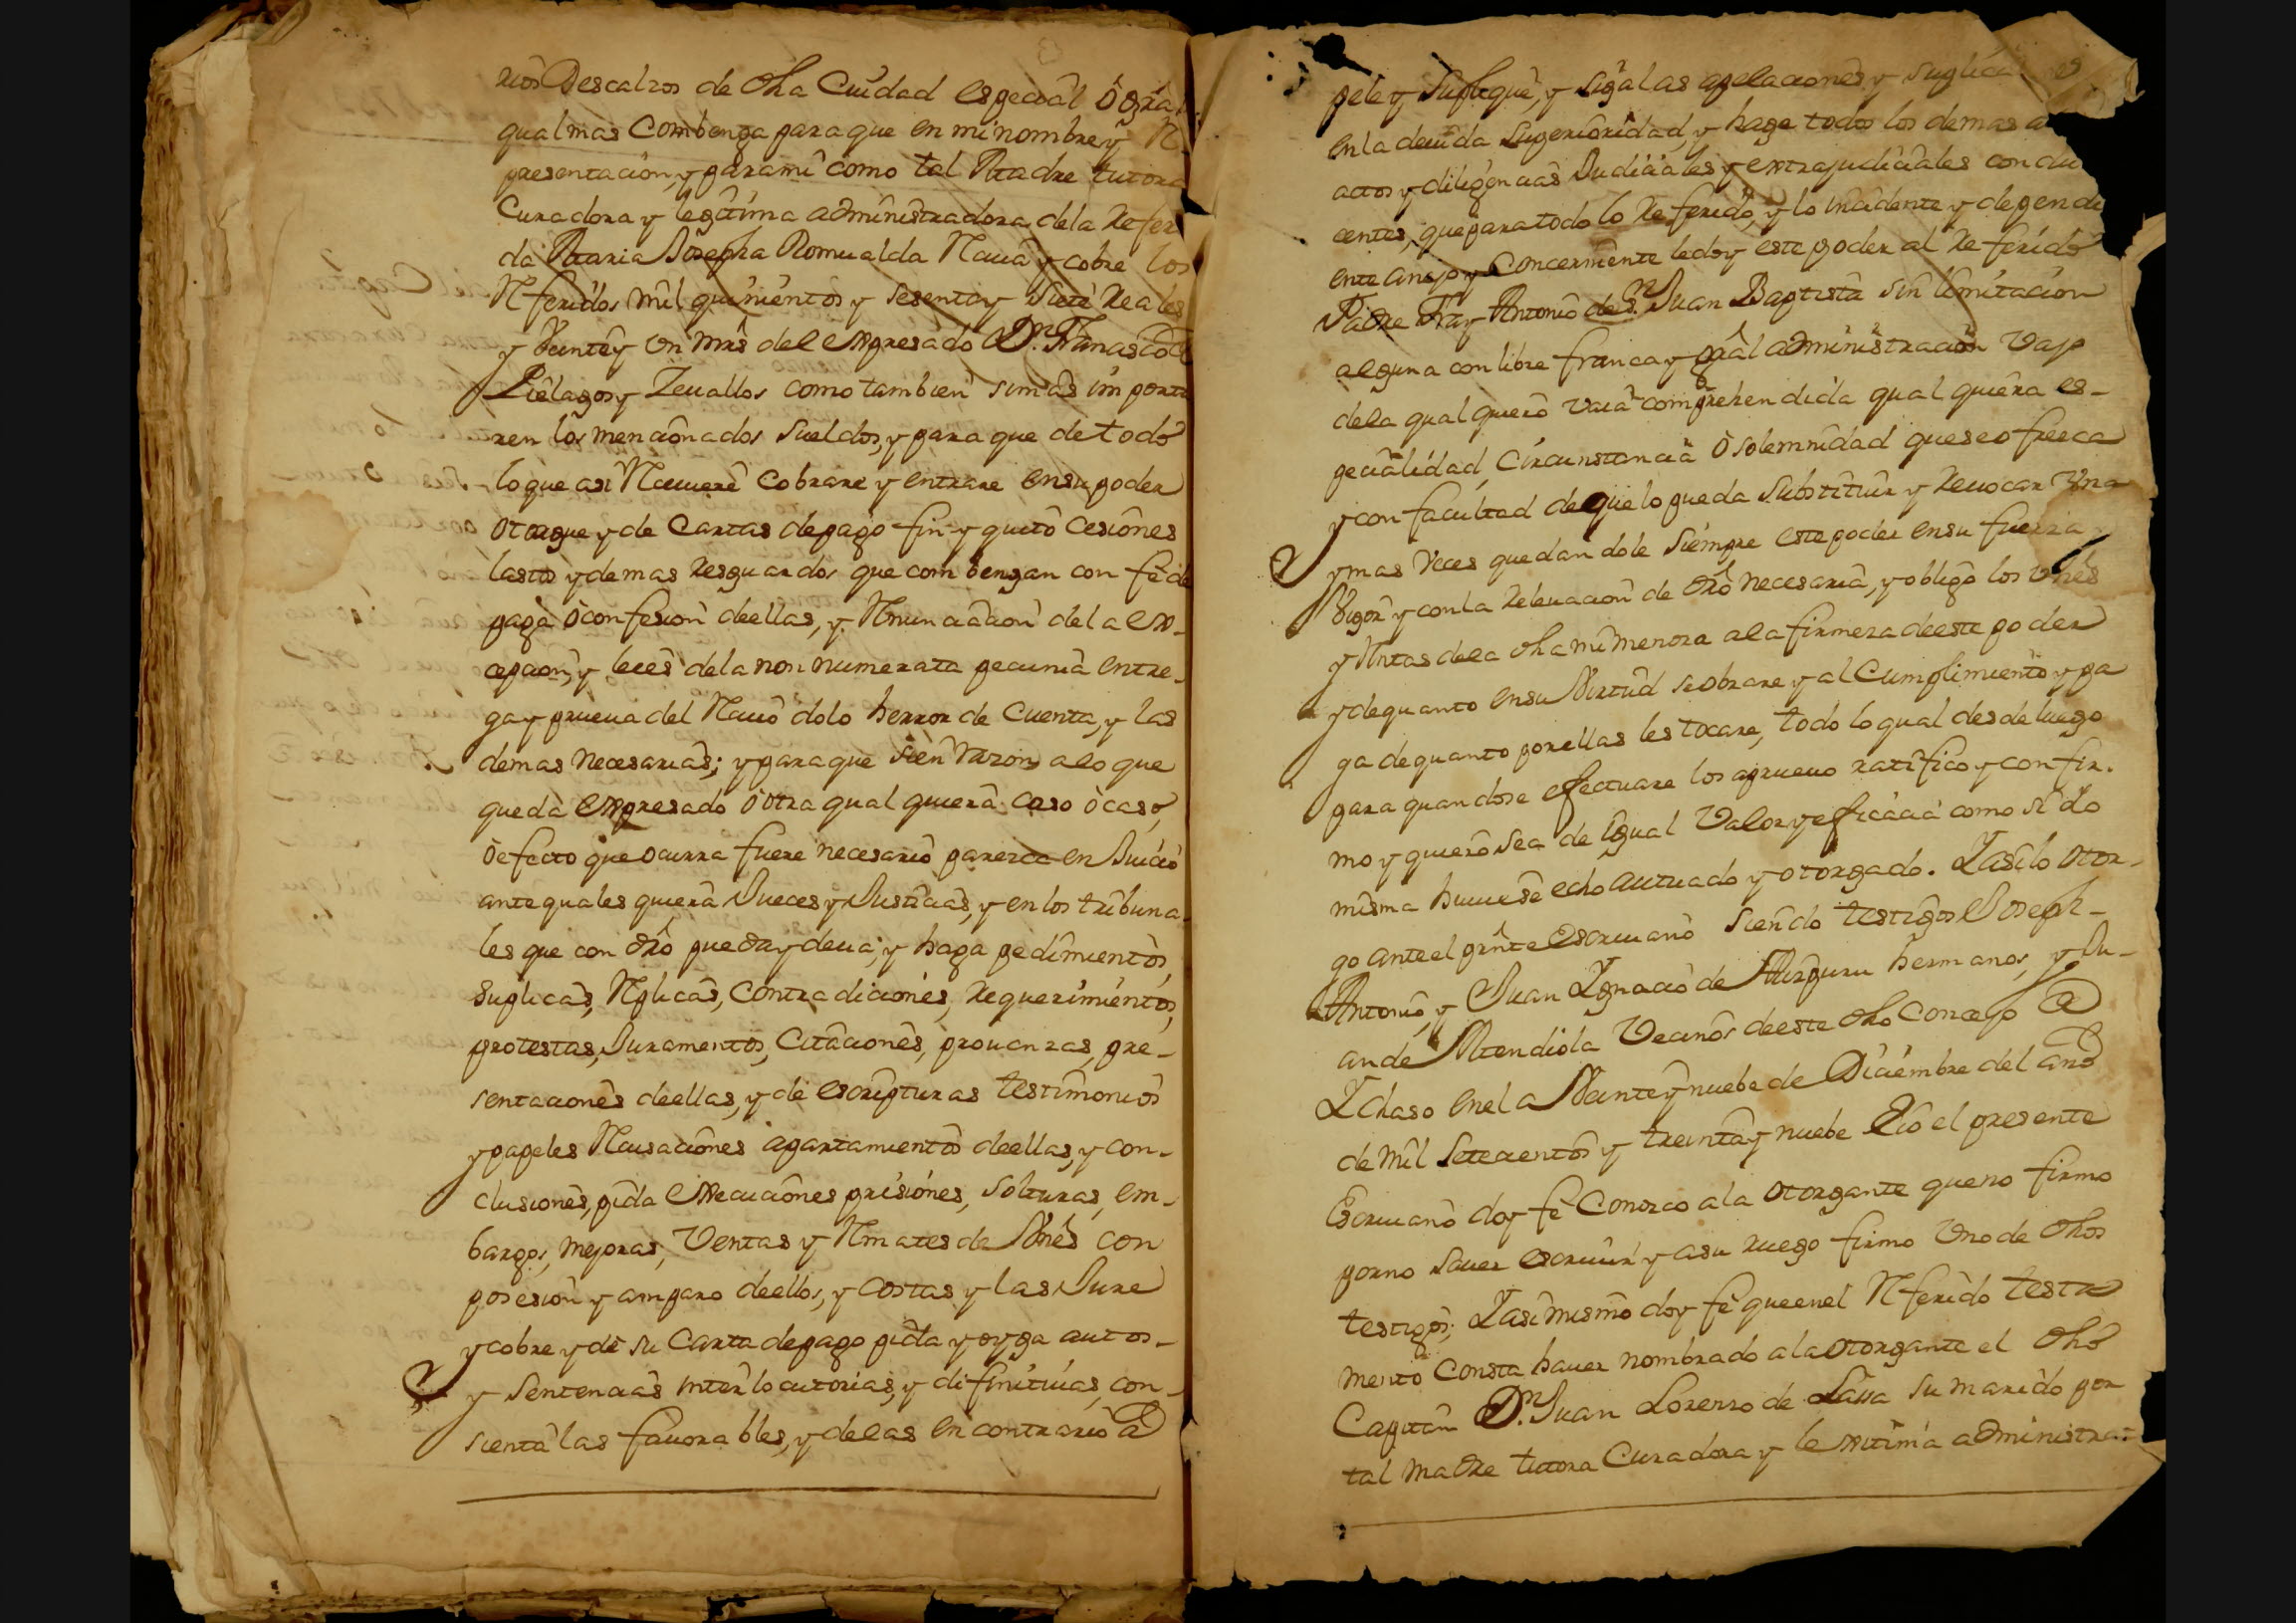 rios Descalzos de dha Ciudad especiâl ò gral
qual mas Combenga para que en mi nombre y Re
presentacion, y para mi como tal Madre tutora
Curadora y legitima administradora dela Refer
da Maria Josepha Romualda Reciua y cobre los
Referidos mil quinientos y sesenta y siete Reales
y Veinte y un mrs del expresado Dn. Francisco de
Pielagos y Zeuallos como tambien si mas importa
ren los mencionados sueldos, y para que de todo
lo que asi Reciuiere Cobrare y entrare en su poder
otorgue y de Cartas de pago fin y quito Cesiones
lasto y demas Resguardos que combengan con fe de
paga ò confesion de ellas, y Renunciacion de la ex-
cepcion, y leies de la non numerata pecunia entre-
ga y prueua del Reciuo dolo herror de Cuenta, y las
demas necesarias; y para que si en razon a lo que
queda expresado ò otra qual quiera caso ò caso,
ò efecto que ocurra fuere necesario parezca en Juicio
ante quales quiera Jueces y Justicias, y en los tribuna-
les que con dro pueda y deua; y haga pedimientos,
Suplicas, Replicas, Contradiciones, Requerimientos,
protestas, Juramentos, Citaciones, prouanzas, pre-
sentaciones de ellas, y de escripturas testimonios
y papeles Recusaciones apartamientos de ellas, y con-
clusiones, pida execuciones prisiones, solturas, em-
bargos, mejoras, Ventas y Remates de Vnes con
posesion y amparo de ellos, y costas y las Jure
y cobre y de su Carta de pago pida y oyga autos-
y Sentencias interlocutorias, y difinitiuas, con-
sienta las fauorables, y de las en contrario a
pele y Suplique, y siga las apelaciones y suplica es
en la deuida Superioridad, y haga todos los demas
actos y diligencias Judiciales y extrajudiciales condu
centes, que para todo lo Referido, y lo incidente y depende
ente anejo y Concerniente le doy este poder al Referido
Padre Fray Antonio de Sn. Juan Baptista sin limitacion
alguna con libre franca y gral administracion Vajo
de la qual quiero vaia comprehendida qual quiera es-
pecialidad, Circunstancia ò solemnidad que se ofrezca
y con facultad de que lo pueda Substituir y Reuocar Una
y mas Veces quedandole siempre este poder en su fuerza y
Vigor y con la Releuacion de dro necesaria, y obligo los vnes
y Rentas de la dha mi menora a la firmeza de este poder
y de quanto en su Virtud se obrare y al Cumplimiento y pa
ga de quanto por ellas les tocare, todo lo qual desde luego
para quando se efectuare los aprueuo ratifico y confir-
mo y quiero sea de igual Valor y eficacia como si Io
misma huuiese echo actuado y otorgado. Y asi lo otor-
go ante el prnte Escriuano siendo testigos Joseph-
Antonio, y Juan Ygnacio de Murguru hermanos, y Ju-
an de Mendiola Vecinos de este dho Concejo
Ychaso en el a Veinte y nuebe de Diciembre del año
de mil Setecientos y treinta y nuebe E io el presente
Escriuano doy fe Conozco a la otorgante que no firmo
por no sauer escriuir y a su ruego firmo Uno de dhos
testigos; Y asi mismo doy fe que en el Referido testa
mento Consta hauer nombrado a la otorgante el dho
Capitan Dn. Juan Lorenzo de Lassa su marido por
tal madre tutora Curadora y lexitima administra-